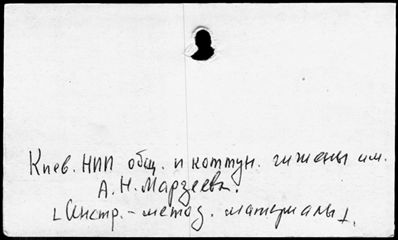 Киев. НИИ общ. и коммун. гигиены им.
А. Н. Марзеева.
[Инстр.-метод. материалы].